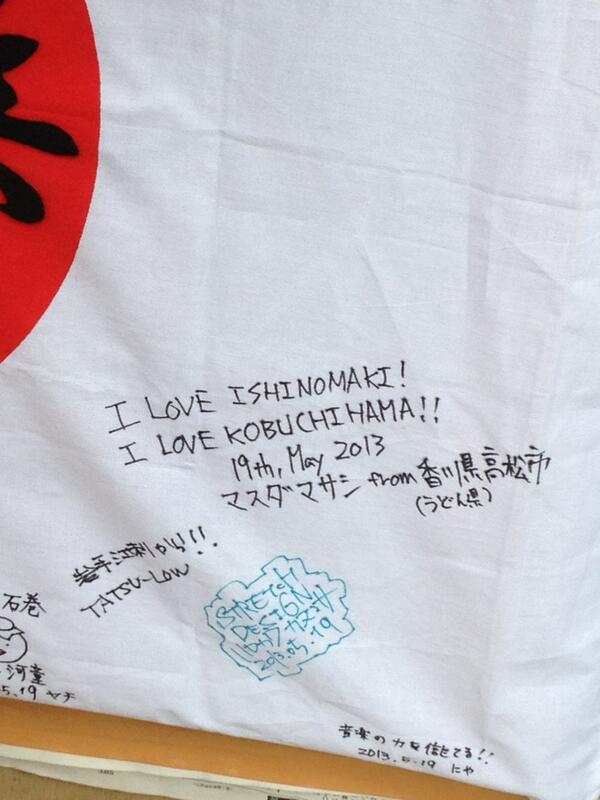 I LOVE ISHINOMAKI!
I LOVE KOBUCHIHAMA!!
19th, May 2013
マスダマサシ from 香川県高松市
(うどん県)
から!!
TATSU-LOW
STRETCH
DESIGN
2013.05.19
石巻
河童
5.19 ヤチ
音楽の力を信じてる!!
2013.5.19 にゃ